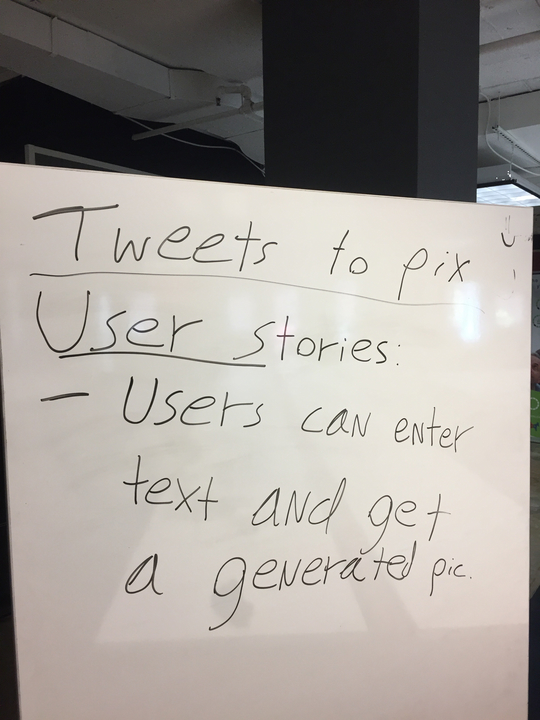 Tweets to pix
User stories:
- Users can enter
text and get
a generated pic.